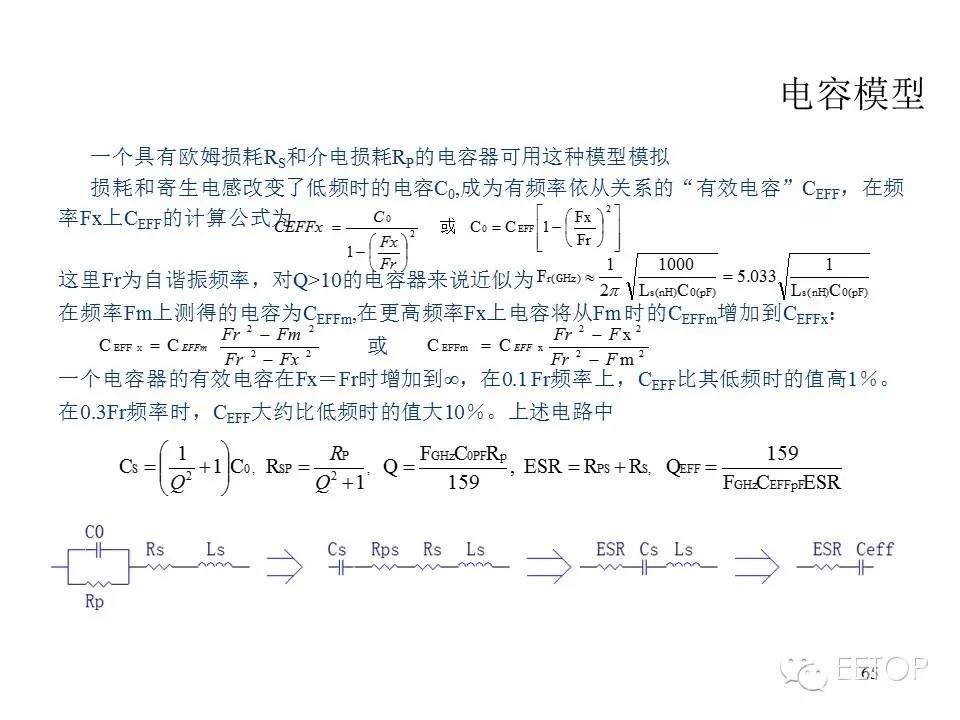 电容模型
一个具有欧姆损耗RS和介电损耗RP的电容器可用这种模型模拟
损耗和寄生电感改变了低频时的电容C0,成为有频率依从关系的“有效电容”CEFF，在频
率Fx上CEFF的计算公式为 CEFFx = C0 / (1−(Fx/Fr)^2) 或 C0 = CEFF[1−(Fx/Fr)^2]
这里Fr为自谐振频率，对Q>10的电容器来说近似为 Fr(GHz) ≈ 1/2π √(1000 / Ls(nH)C0(pF)) = 5.033 √(1 / Ls(nH)C0(pF))
在频率Fm上测得的电容为CEFFm,在更高频率Fx上电容将从Fm时的CEFFm增加到CEFFx：
C EFF x = C EFFm (Fr^2 − Fm^2) / (Fr^2 − Fx^2) 或 C EFFm = C EFF x (Fr^2 − Fx^2) / (Fr^2 − Fm^2)
一个电容器的有效电容在Fx＝Fr时增加到∞，在0.1Fr频率上，CEFF比其低频时的值高1％。
在0.3Fr频率时，CEFF大约比低频时的值大10％。上述电路中
CS = (1/Q^2 + 1)C0, RSP = RP / (Q^2+1), Q = FGHzC0PFRp / 159, ESR = RPS + RS, QEFF = 159 / FGHzCEFFpFESR
C0 Rs Ls Rp
Cs Rps Rs Ls
ESR Cs Ls
ESR Ceff
65
EETOP